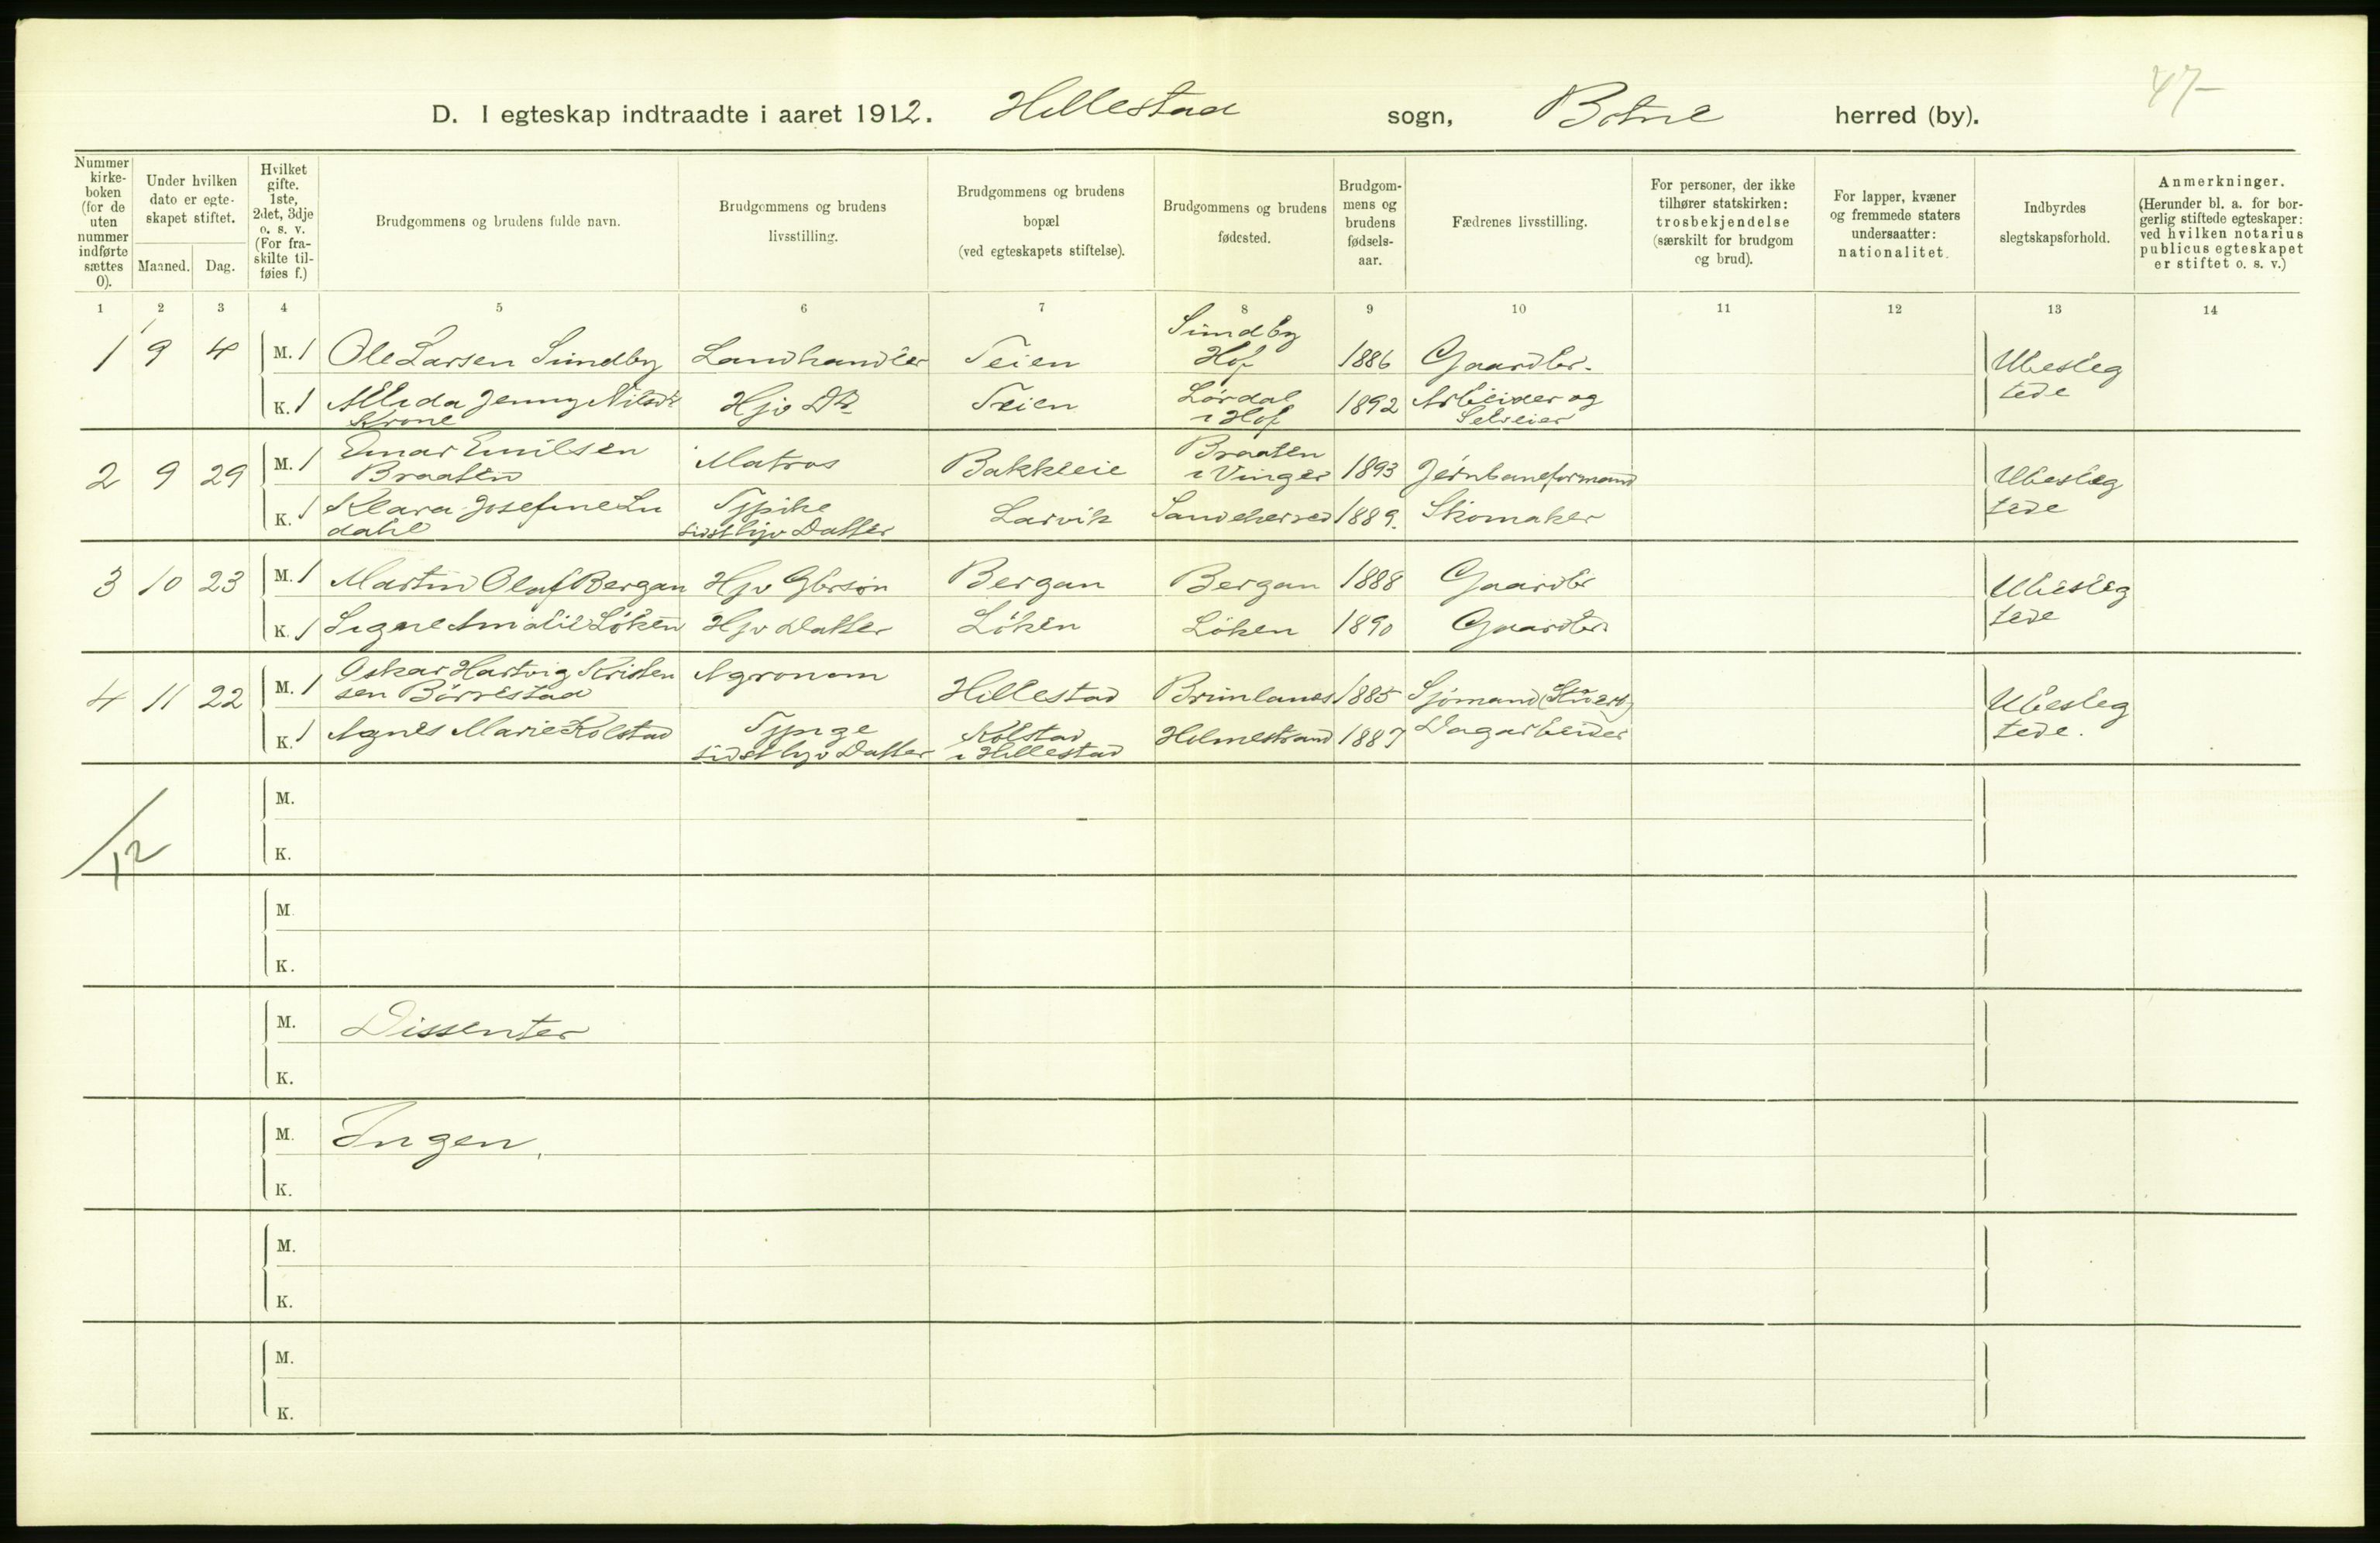 47-
D. I egteskap indtraadte i aaret 1912. Hillestad sogn, Botne herred (by).
Nummer kirke-boken (for de uten nummer indførte sættes 0).
Under hvilken dato er egte-skapet stiftet.
Maaned. Dag.
Hvilket gifte. 1ste, 2det, 3dje o. s. v. (For fra-skilte til-føies f.)
Brudgommens og brudens fulde navn.
Brudgommens og brudens livsstilling.
Brudgommens og brudens bopæl (ved egteskapets stiftelse).
Brudgommens og brudens fødested.
Brudgom-mens og brudens fødsels-aar.
Fædrenes livsstilling.
For personer, der ikke tilhører statskirken: trosbekjendelse (særskilt for brudgom og brud).
For lapper, kvæner og fremmede staters undersaatter: nationalitet.
Indbyrdes slegtskapsforhold.
Anmerkninger. (Herunder bl. a. for bor-gerlig stiftede egteskaper: ved hvilken notarius publicus egteskapet er stiftet o. s. v.)
1 2 3 4 5 6 7 8 9 10 11 12 13 14
1 9 4 M. 1 Ole Larsen Sundby Landhandler Teien Sundby Hof 1886 Gaardbr. Ubesleg tede
K. 1 Alida Jenny Nilsdtr Krone Hjv Dtr Teien Lørdal i Hof 1892 Arbeider og Selveier
2 9 29 M. 1 Einar Emilsen Braaten Matros Bakkeeie Braaten i Vinger 1893 Jernbaneformand Ubesleg tede
K. 1 Klara Josefine Lu dahl Tjpike sidst hjv Datter Larvik Sandeherred 1889. Skomaker
3 10 23 M. 1 Martin Olaf Bergan Hjv Gbrsøn Bergan Bergan 1888 Gaardbr Ubesleg tede
K. 1 Signe Amalie Löken Hjv Datter Löken Löken 1890 Gaardbr.
4 11 22 M. 1 Oskar Hartvig Kristen sen Börrestad Agronom Hillestad Brunlanes 1885 Sjömand (Stuert) Ubesleg tede.
K. 1 Agnes Marie Kolstad Tjpige sidst hjv Datter Kolstad i Hillestad Holmestrand 1887 Dagarbeider
M.
/12
K.
M
K.
M. Dissenter
K.
M. Ingen.
K.
M.
K.
M.
K.